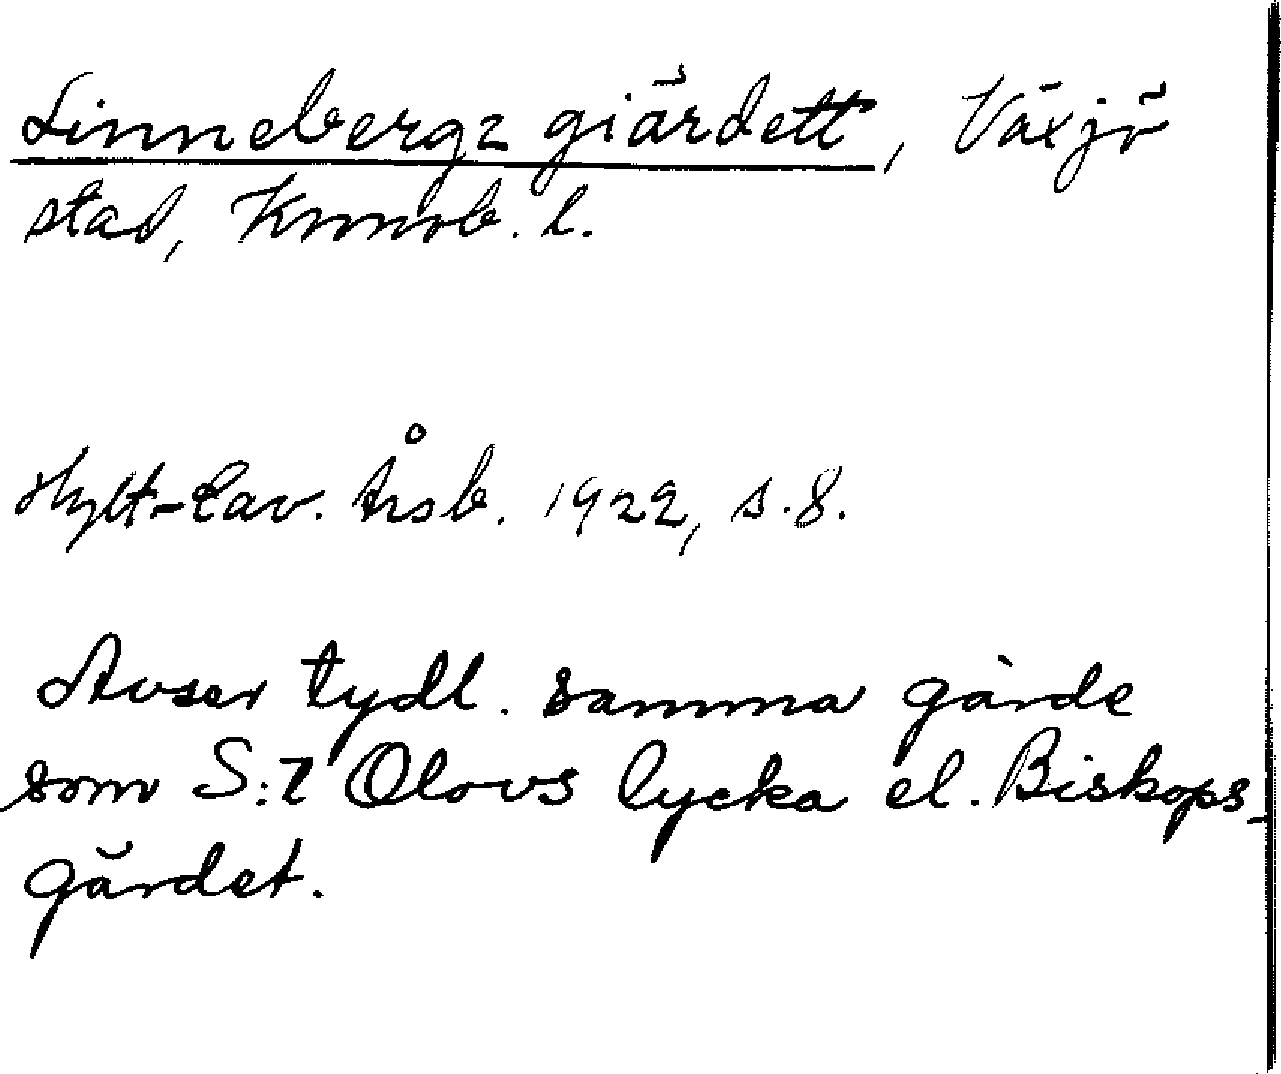 Linnebergz giärdett, Växjö
stad, Kronob. l.
Hylt-Cav. Årsb. 1922, s.8.
Avser tydl. samma gärde
som S:t Olovs lycka el. Biskops-
gärdet.